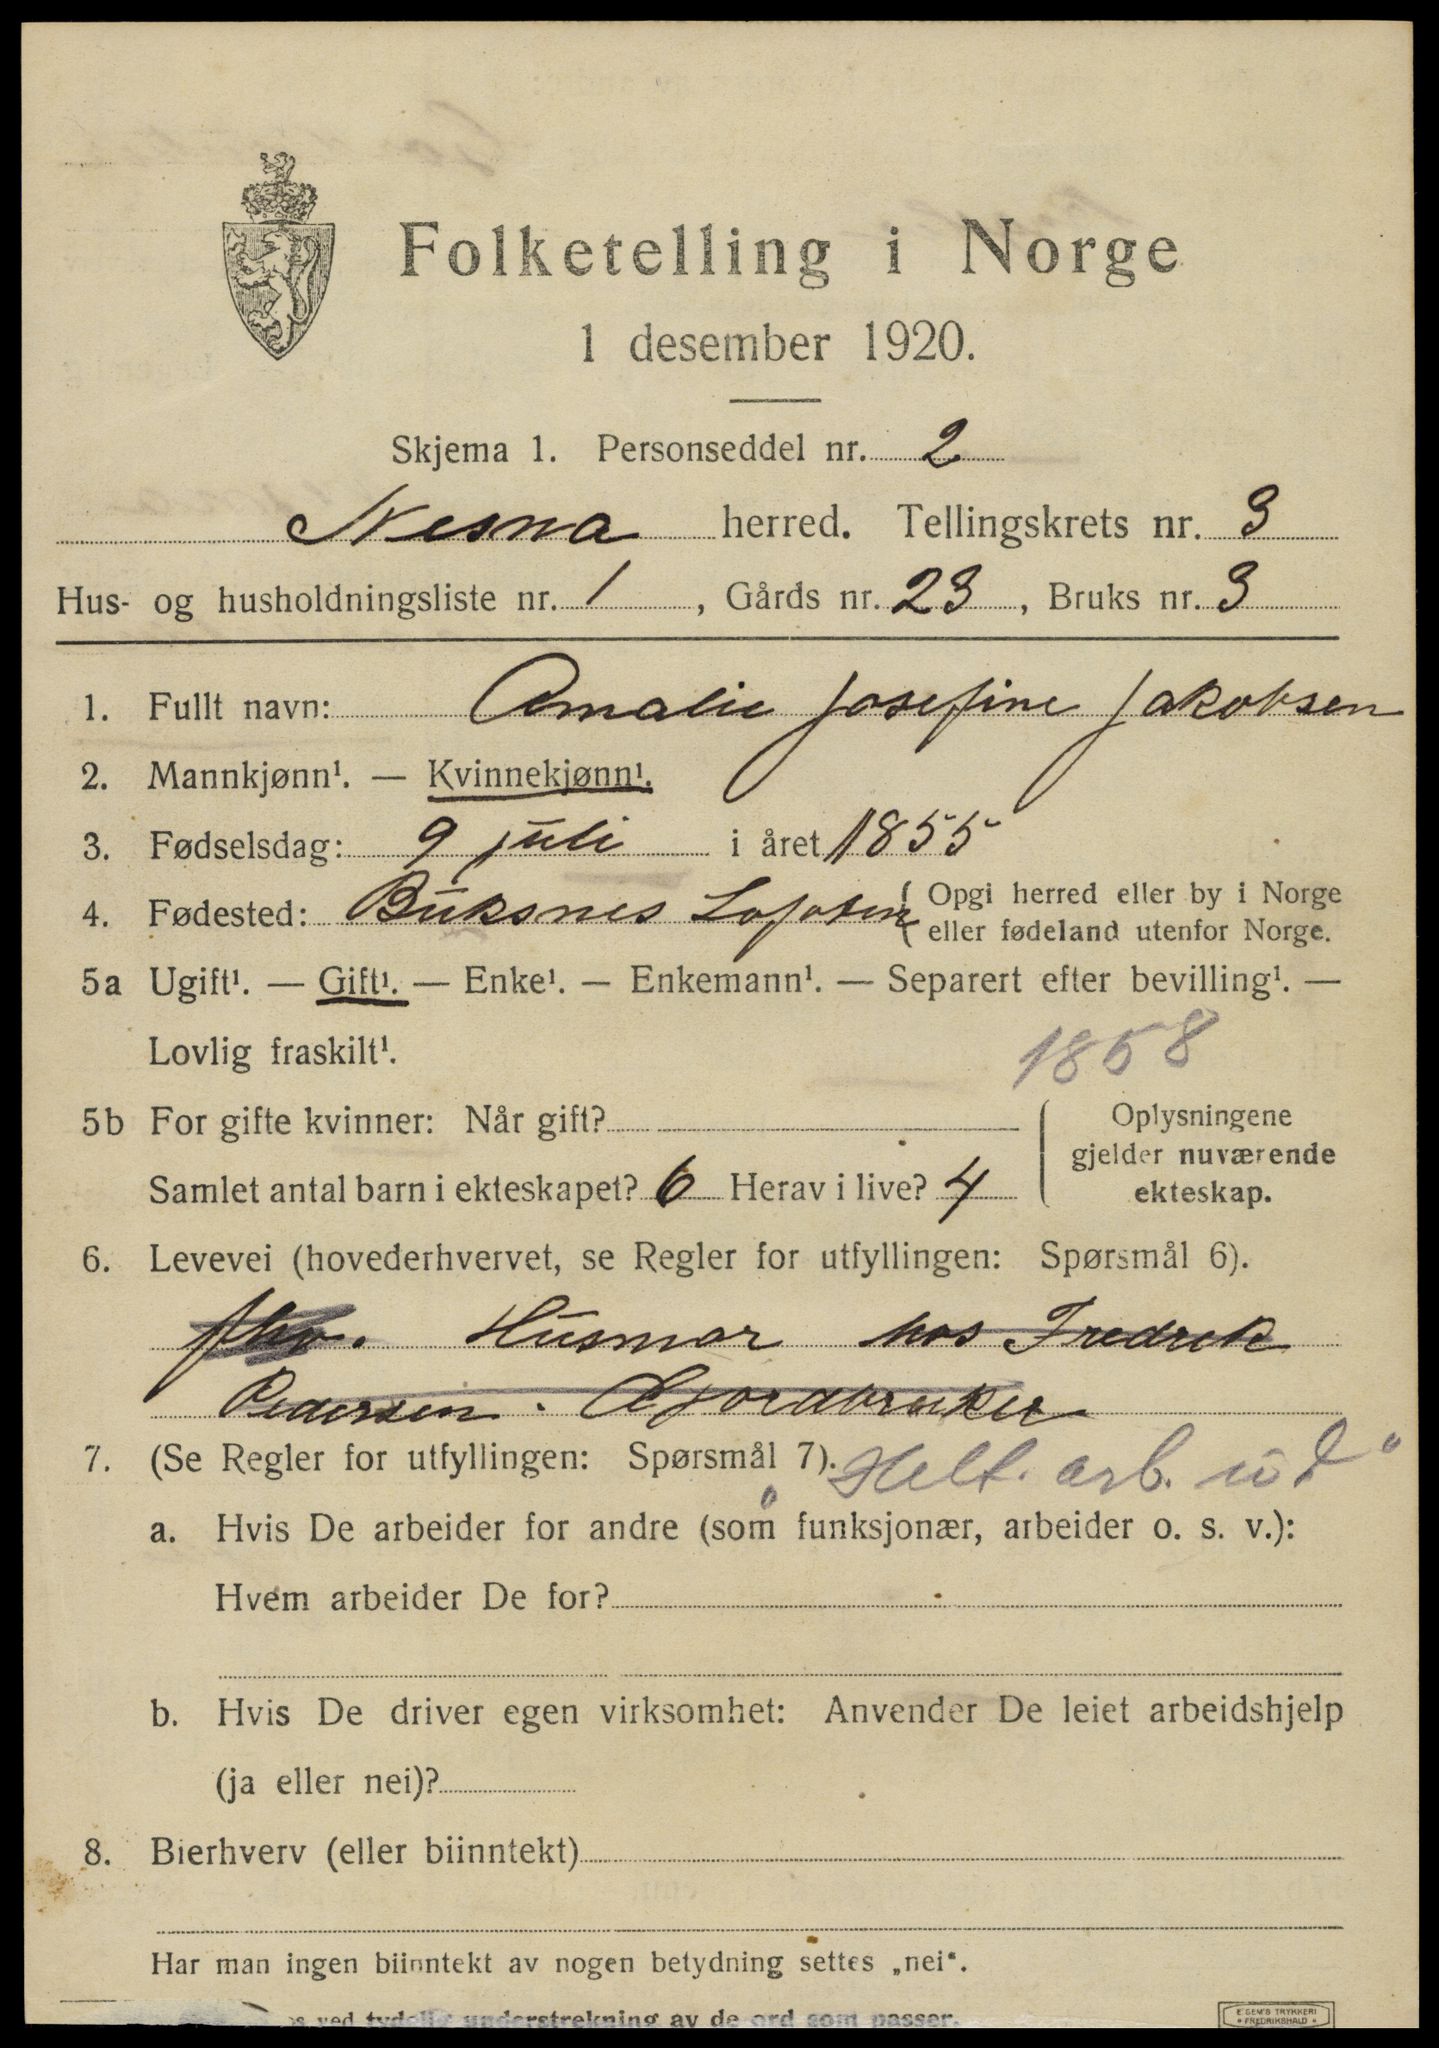 Folketelling i Norge
1 desember 1920.
Skjema 1. Personseddel nr. 2
Nesna herred. Tellingskrets nr. 3
Hus- og husholdningsliste nr. 1, Gårds nr. 23, Bruks nr. 3
1. Fullt navn: Amalie Josefine Jakobsen
2. Mannkjønn¹. — Kvinnekjønn¹.
3. Fødselsdag: 9 juli i året 1855
4. Fødested: Buksnes Lofoten { Opgi herred eller by i Norge
eller fødeland utenfor Norge.
5a Ugift¹. — Gift¹. — Enke¹. — Enkemann¹. — Separert efter bevilling¹. —
Lovlig fraskilt¹.
1858
5b For gifte kvinner: Når gift?
Samlet antal barn i ekteskapet? 6 Herav i live? 4
Oplysningene
gjelder nuværende
ekteskap.
6. Levevei (hovederhvervet, se Regler for utfyllingen: Spørsmål 6).
Husmor hos Fredrik
Pedersen. Gjordbruker
7. (Se Regler for utfyllingen: Spørsmål 7).
Helt. arb.
a. Hvis De arbeider for andre (som funksjonær, arbeider o. s. v.):
Hvem arbeider De for?
b. Hvis De driver egen virksomhet: Anvender De leiet arbeidshjelp
(ja eller nei)?
8. Bierhverv (eller biinntekt)
Har man ingen biinntekt av nogen betydning settes „nei“.
ved tydelig understrekning av de ord som passer.
E SEM'S TRYKKERI
FREDRIKSHALD